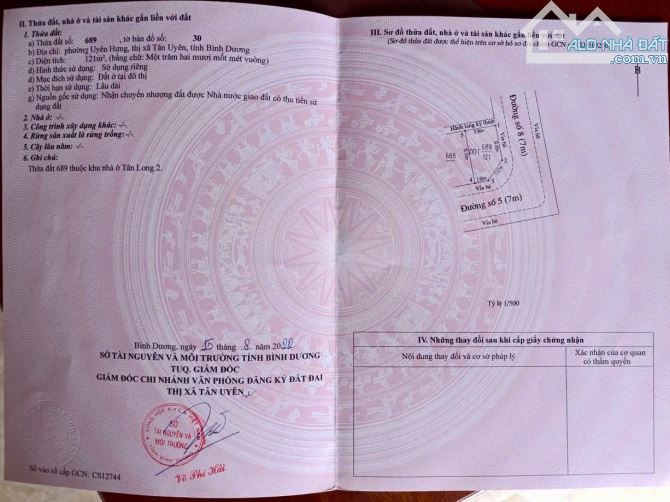 II. Thửa đất, nhà ở và tài sản khác gắn liền với đất
1. Thửa đất:
a) Thửa đất số: 689 , tờ bản đồ số: 30
b) Địa chỉ: phường Uyên Hưng, thị xã Tân Uyên, tỉnh Bình Dương
c) Diện tích: 121m², (bằng chữ: Một trăm hai mươi mốt mét vuông)
d) Hình thức sử dụng: Sử dụng riêng
đ) Mục đích sử dụng: Đất ở tại đô thị
e) Thời hạn sử dụng: Lâu dài
g) Nguồn gốc sử dụng: Nhận chuyển nhượng đất được Nhà nước giao đất có thu tiền sử
dụng đất
2. Nhà ở: -/-
3. Công trình xây dựng khác: -/-
4. Rừng sản xuất là rừng trồng: -/-
5. Cây lâu năm: -/-
6. Ghi chú:
Thửa đất 689 thuộc khu nhà ở Tân Long 2.
Bình Dương, ngày 15 tháng 8 năm 2022
SỞ TÀI NGUYÊN VÀ MÔI TRƯỜNG TỈNH BÌNH DƯƠNG
TUQ. GIÁM ĐỐC
GIÁM ĐỐC CHI NHÁNH VĂN PHÒNG ĐĂNG KÝ ĐẤT ĐAI
THỊ XÃ TÂN UYÊN
SỞ
TÀI NGUYÊN VÀ
MÔI TRƯỜNG
Võ Phi Hải
Số vào sổ cấp GCN: CS12744
III. Sơ đồ thửa đất, nhà ở và tài sản khác gắn liền với đất
(Sơ đồ thửa đất được thể hiện trên cơ sở hồ sơ địa chính
ALO NHÀ ĐẤT
B
Hành lang kỹ thuật
Đường số 8 (7m)
Vỉa hè
688
689
121
Vỉa hè
Đường số 5 (7m)
Vỉa hè
Tỷ lệ 1/500
IV. Những thay đổi sau khi cấp giấy chứng nhận
Nội dung thay đổi và cơ sở pháp lý
Xác nhận của cơ quan
có thẩm quyền